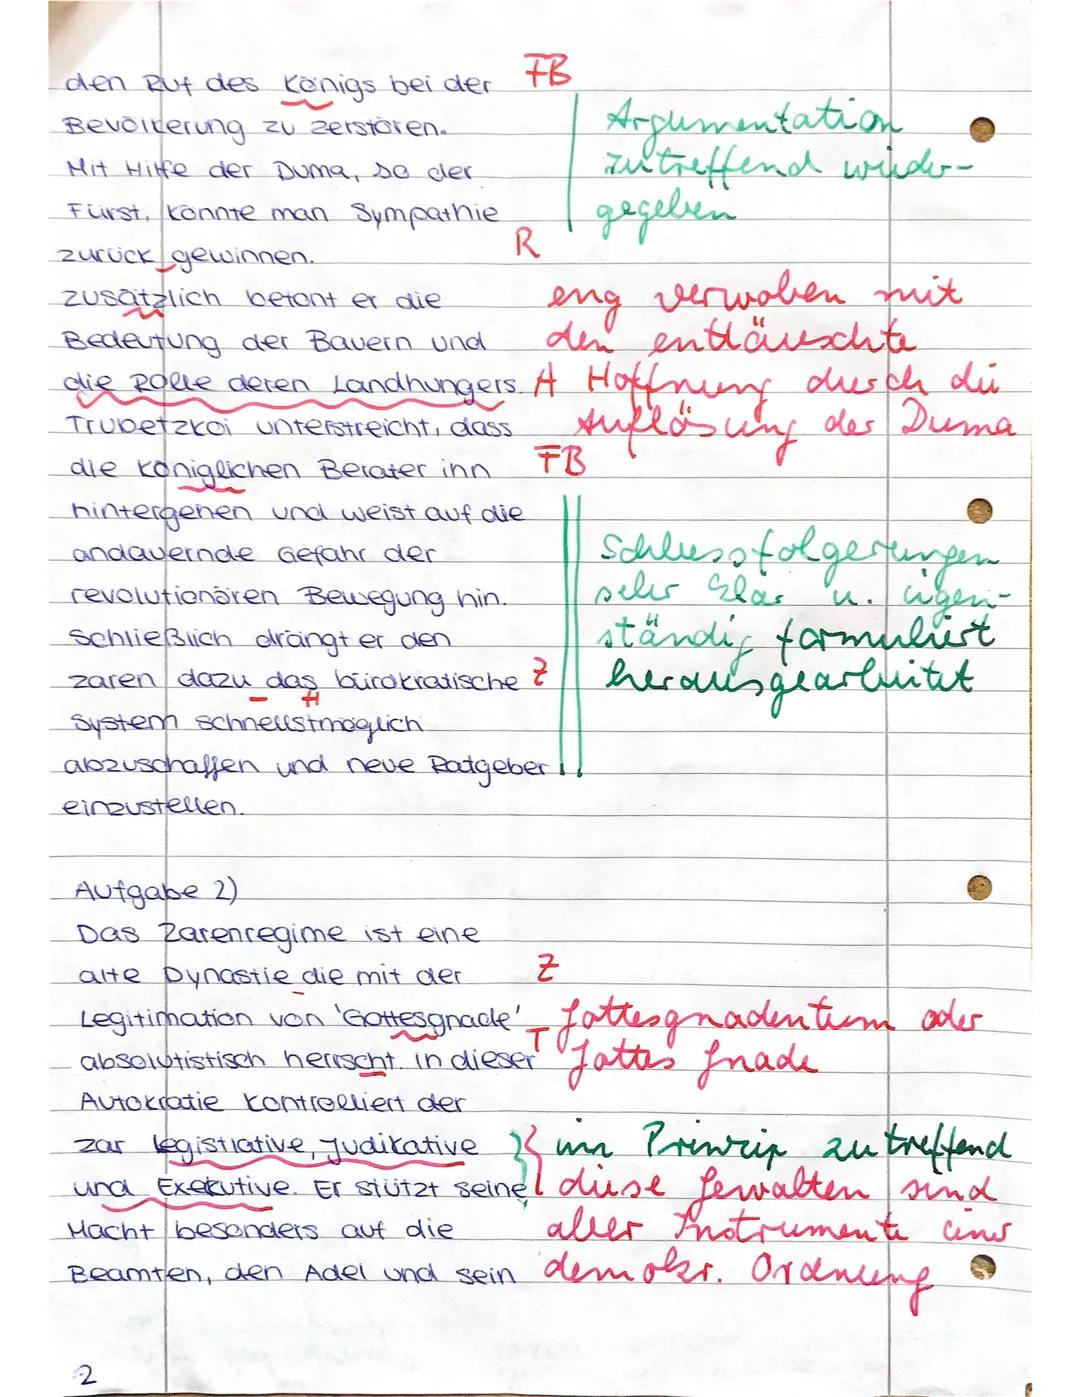 den Ruf des Königs bei der FB
Bevölkerung zu zerstören. Argumentation
Mit Hilfe der Duma, so der zutreffend wieder-
Fürst, könnte man Sympathie gegeben
zurück gewinnen. R
zusätzlich betont er die eng verwoben mit
Bedeutung der Bauern und den enttäuschte
die Rolle deren Landhungers. A Hoffnung durch die
Trubetzkoi unterstreicht, dass Auflösung der Duma
die königlichen Berater inn FB
hintergehen und weist auf die
andauernde Gefahr der Schlussfolgerungen
revolutionären Bewegung hin. sehr klar u. eigen-
Schließlich drängt er den ständig formuliert
zaren dazu das bürokratische Z herausgearbeitet
System schnellstmöglich
abzuschaffen und neue Ratgeber
einzustellen.
Aufgabe 2)
Das Zarenregime ist eine
alte Dynastie die mit der Z
Legitimation von 'Gottesgnade' T Gottesgnadentum oder
absolutistisch herrscht. In dieser Gottes Gnade
Autokratie kontrolliert der
zar legistiative, Judikative im Prinzip zutreffend
und Exekutive. Er stützt seine diese Gewalten sind
Macht besonders auf die aber Instrumente einer
Beamten, den Adel und sein demokr. Ordnung
2